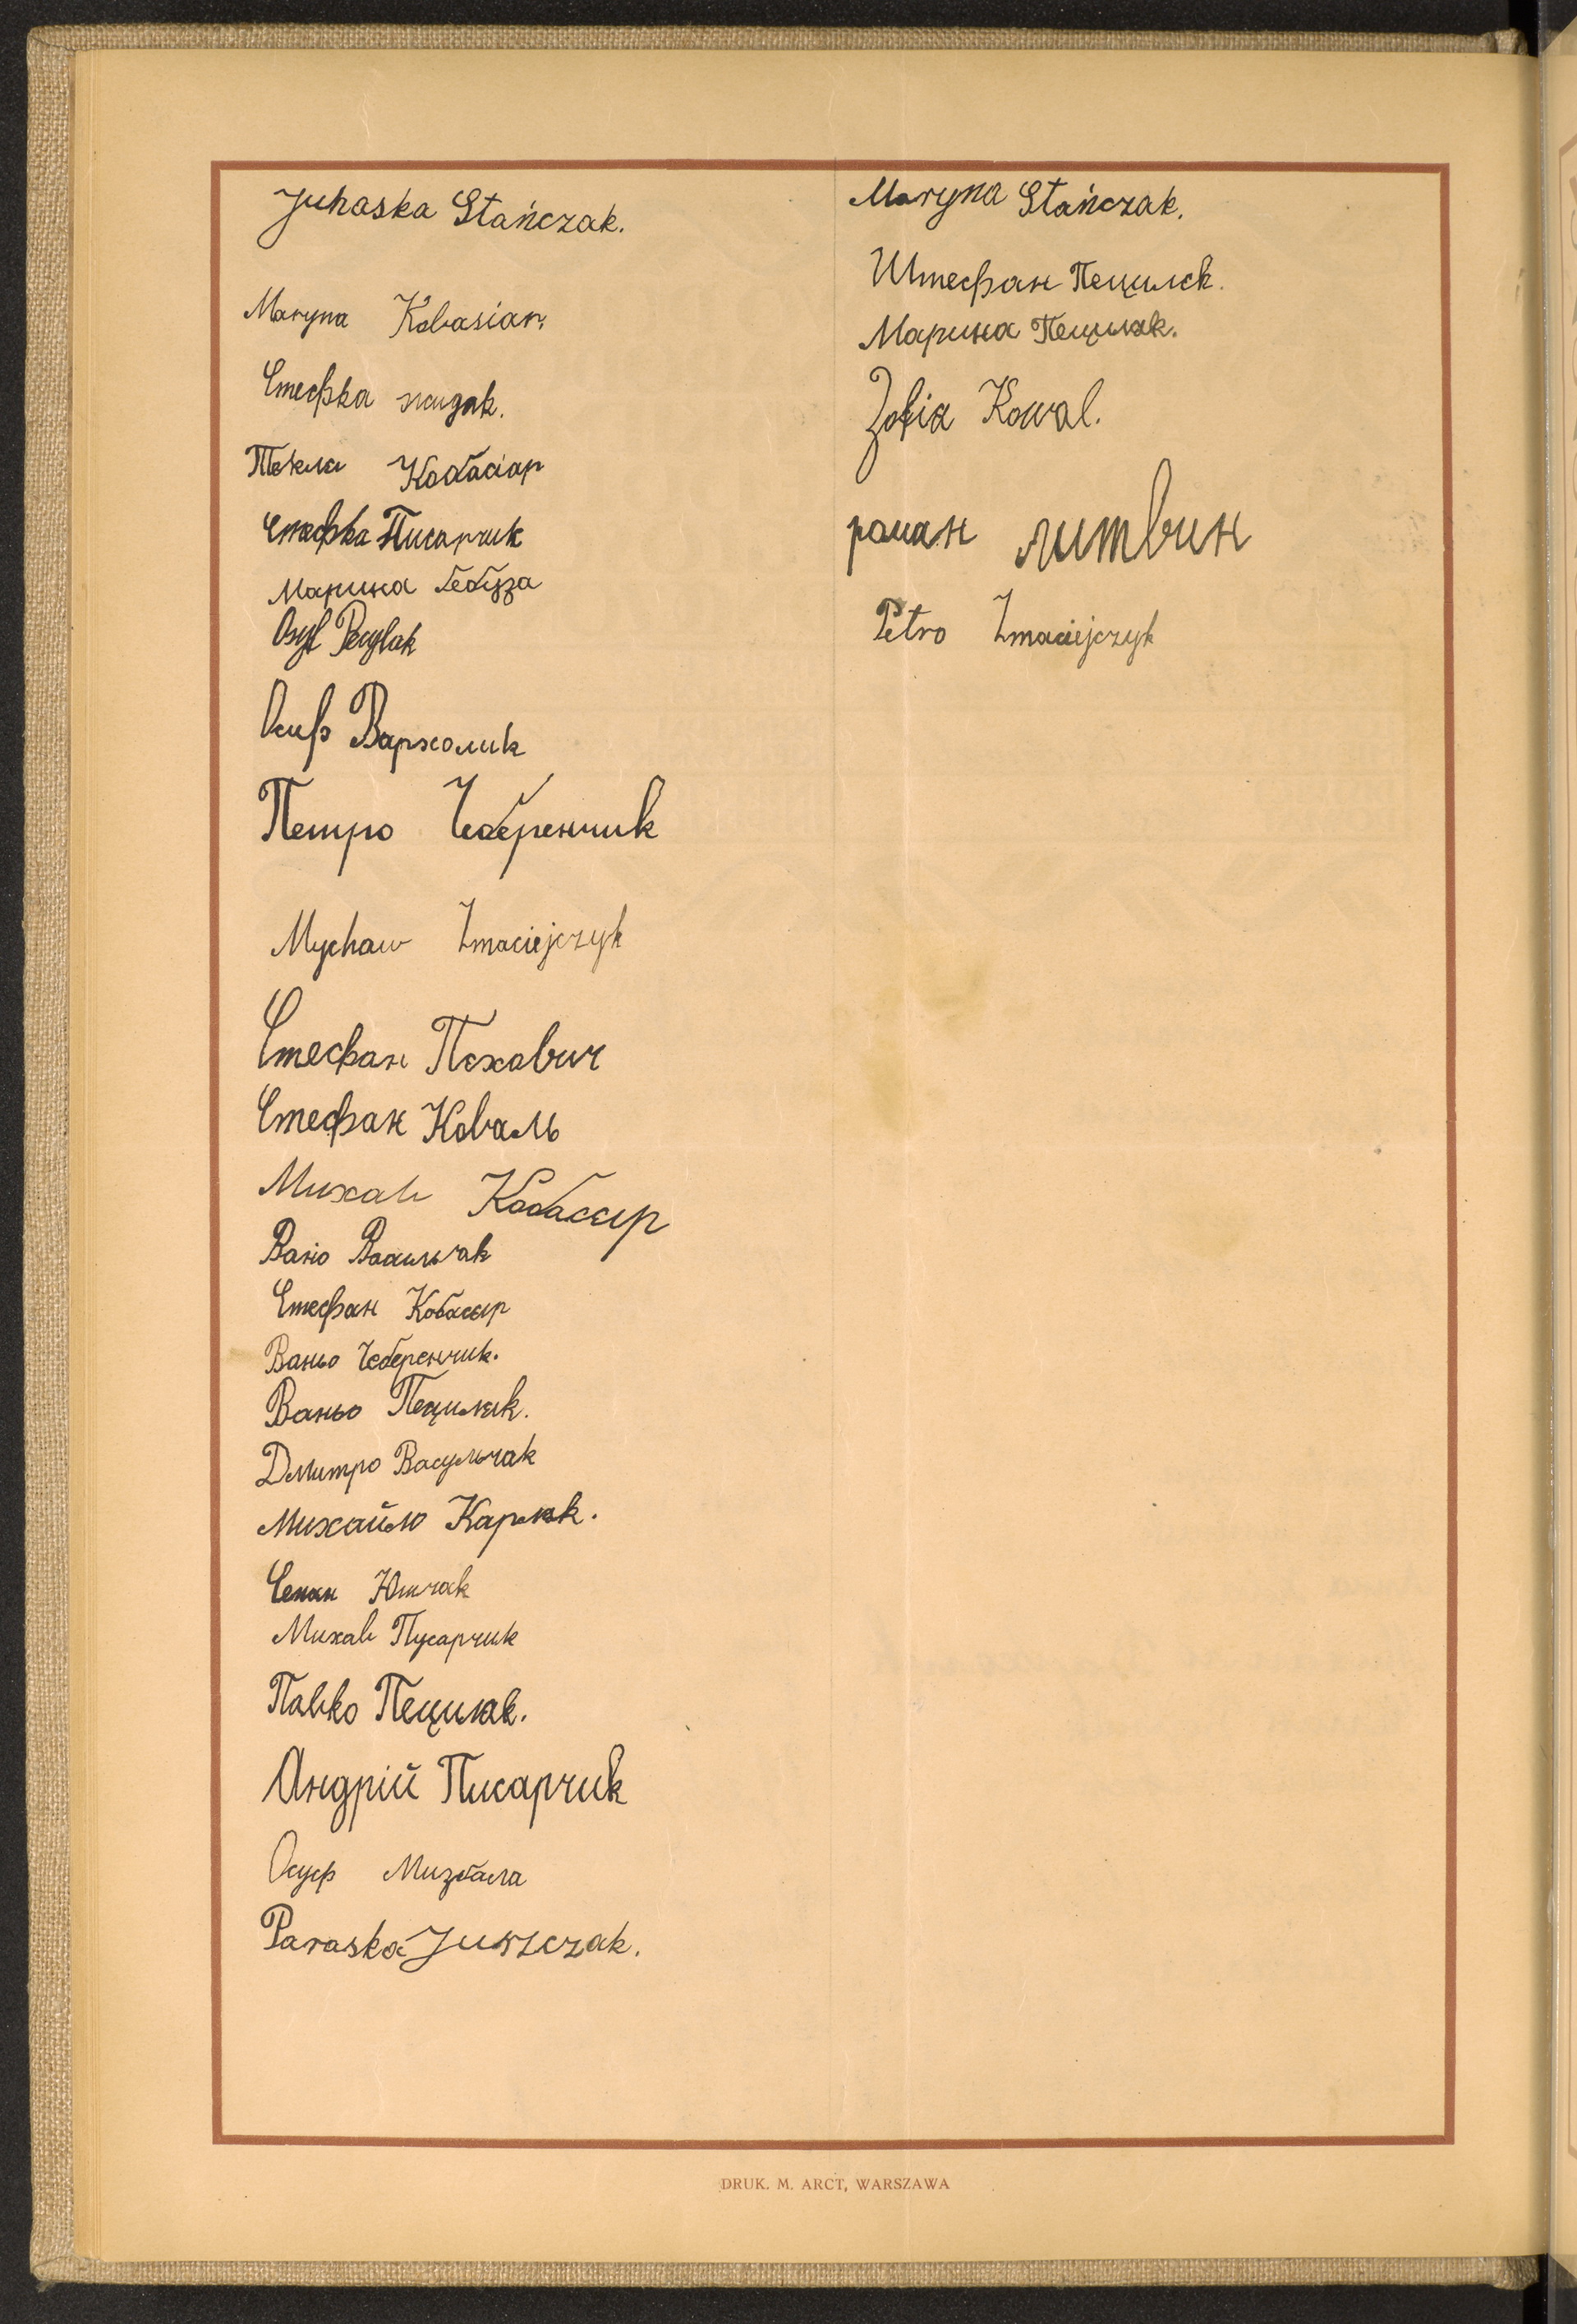 Juhaska Stańczak.
Maryna Kobasiar.
Стефка жидак.
Текла Кобасіар
Стефка Писарчик
Марина Бебзза
Osyf Pecylak
Осиф Вархолик
Петро Чеберенчик
Mychaw Zmaciejczyk
Стефан Пехавич
Стефан Коваль
Михав Кобасяр
Ваньо Васильчак
Стефан Кобасяр
Ваньо Чеберенчик.
Ваньо Пециляк.
Дмитро Васульчак
Михайло Карляк.
Семан Юшчак
Михав Пусарчик
Павко Пециляк.
Андрій Писарчик
Осуф Мизбала
Paraska Juszczak.
Maryna Stańczak.
Штефан Пециляк.
Марина Пециляк.
Zofia Kowal.
роман литвин
Petro Zmaciejczyk
DRUK. M. ARCT, WARSZAWA